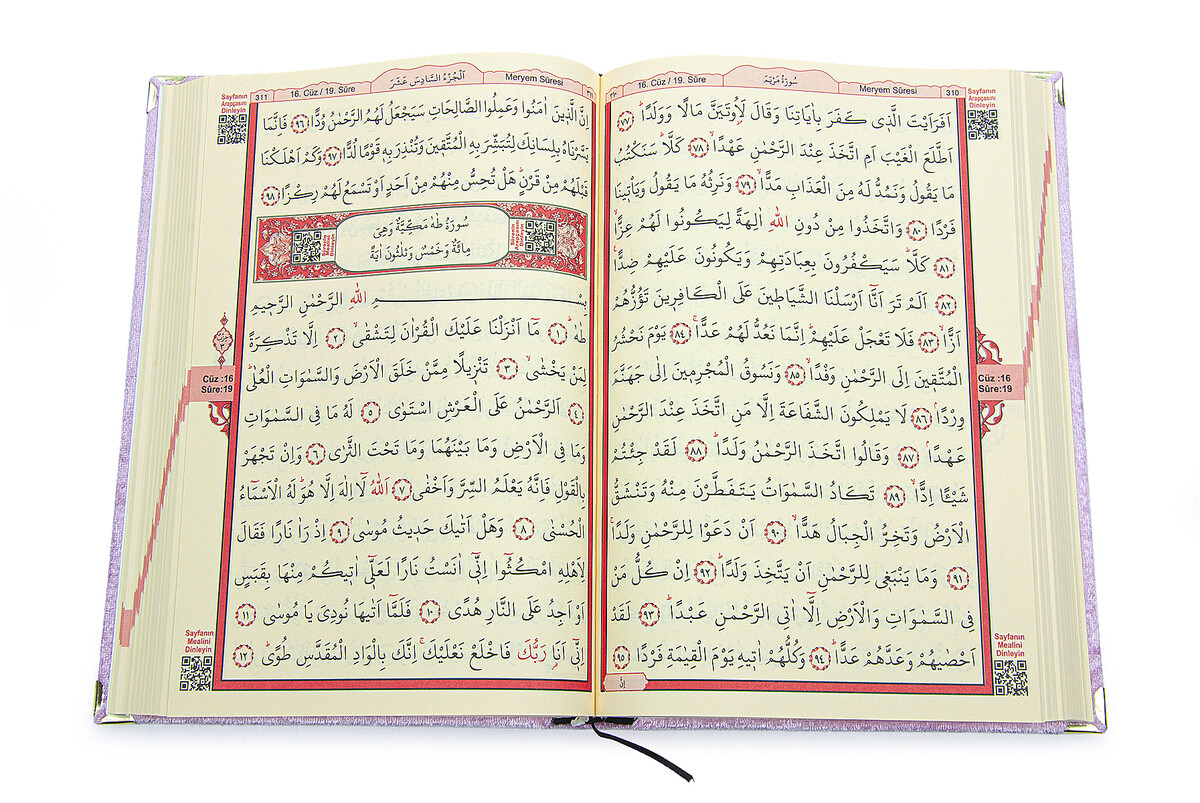 310
Meryem Sûresi
سُورَةُ مَرْيَمَ
16. Cüz / 19. Sûre
Sayfanın
Arapçasını
Dinleyin
اَفَرَاَيْتَ الَّذ۪ي كَفَرَ بِاٰيَاتِنَا وَقَالَ لَاُو۫تَيَنَّ مَالًا وَوَلَدًاۜ ﴿٧٧﴾
اَطَّلَعَ الْغَيْبَ اَمِ اتَّخَذَ عِنْدَ الرَّحْمٰنِ عَهْدًاۙ ﴿٧٨﴾ كَلَّاۜ سَنَكْتُبُ
مَا يَقُولُ وَنَمُدُّ لَهُ مِنَ الْعَذَابِ مَدًّاۙ ﴿٧٩﴾ وَنَرِثُهُ مَا يَقُولُ وَيَأْت۪ينَا
فَرْدًا ﴿٨٠﴾ وَاتَّخَذُوا مِنْ دُونِ اللّٰهِ اٰلِهَةً لِيَكُونُوا لَهُمْ عِزًّاۙ
﴿٨١﴾ كَلَّاۜ سَيَكْفُرُونَ بِعِبَادَتِهِمْ وَيَكُونُونَ عَلَيْهِمْ ضِدًّا۟
﴿٨٢﴾ اَلَمْ تَرَ اَنَّٓا اَرْسَلْنَا الشَّيَاط۪ينَ عَلَى الْكَافِر۪ينَ تَؤُزُّهُمْ
اَزًّاۙ ﴿٨٣﴾ فَلَا تَعْجَلْ عَلَيْهِمْۜ اِنَّمَا نَعُدُّ لَهُمْ عَدًّاۚ ﴿٨٤﴾ يَوْمَ نَحْشُرُ
الْمُتَّق۪ينَ اِلَى الرَّحْمٰنِ وَفْدًاۙ ﴿٨٥﴾ وَنَسُوقُ الْمُجْرِم۪ينَ اِلٰى جَهَنَّمَ
وِرْدًاۢ ﴿٨٦﴾ لَا يَمْلِكُونَ الشَّفَاعَةَ اِلَّا مَنِ اتَّخَذَ عِنْدَ الرَّحْمٰنِ
عَهْدًاۢ ﴿٨٧﴾ وَقَالُوا اتَّخَذَ الرَّحْمٰنُ وَلَدًاۜ ﴿٨٨﴾ لَقَدْ جِئْتُمْ
شَيْـًٔا اِدًّاۙ ﴿٨٩﴾ تَكَادُ السَّمٰوَاتُ يَتَفَطَّرْنَ مِنْهُ وَتَنْشَقُّ
الْاَرْضُ وَتَخِرُّ الْجِبَالُ هَدًّاۙ ﴿٩٠﴾ اَنْ دَعَوْا لِلرَّحْمٰنِ وَلَدًاۚ
﴿٩١﴾ وَمَا يَنْبَغ۪ي لِلرَّحْمٰنِ اَنْ يَتَّخِذَ وَلَدًاۜ ﴿٩٢﴾ اِنْ كُلُّ مَنْ
فِي السَّمٰوَاتِ وَالْاَرْضِ اِلَّٓا اٰتِي الرَّحْمٰنِ عَبْدًاۜ ﴿٩٣﴾ لَقَدْ
اَحْصٰيهُمْ وَعَدَّهُمْ عَدًّاۜ ﴿٩٤﴾ وَكُلُّهُمْ اٰت۪يهِ يَوْمَ الْقِيٰمَةِ فَرْدًا ﴿٩٥﴾
اِنَّ
Cüz :16
Sûre:19
Sayfanın
Mealini
Dinleyin
Meryem Sûresi
اَلْجُزْءُ السَّادِسَ عَشَرَ
16. Cüz / 19. Sûre
311
Sayfanın
Arapçasını
Dinleyin
اِنَّ الَّذ۪ينَ اٰمَنُوا وَعَمِلُوا الصَّالِحَاتِ سَيَجْعَلُ لَهُمُ الرَّحْمٰنُ وُدًّا ﴿٩٦﴾ فَاِنَّمَا
يَسَّرْنَاهُ بِلِسَانِكَ لِتُبَشِّرَ بِهِ الْمُتَّق۪ينَ وَتُنْذِرَ بِه۪ قَوْمًا لُدًّا ﴿٩٧﴾ وَكَمْ اَهْلَكْنَا
قَبْلَهُمْ مِنْ قَرْنٍۜ هَلْ تُحِسُّ مِنْهُمْ مِنْ اَحَدٍ اَوْ تَسْمَعُ لَهُمْ رِكْزًا ﴿٩٨﴾
سُورَةُ طٰهٰ مَكِّيَّةٌ وَهِيَ
مِائَةٌ وَخَمْسٌ وَثَلٰثُونَ اٰيَةً
بِسْمِ اللّٰهِ الرَّحْمٰنِ الرَّح۪يمِ
طٰهٰۜ ﴿١﴾ مَٓا اَنْزَلْنَا عَلَيْكَ الْقُرْاٰنَ لِتَشْقٰىۙ ﴿٢﴾ اِلَّا تَذْكِرَةً
لِمَنْ يَخْشٰىۙ ﴿٣﴾ تَنْز۪يلًا مِمَّنْ خَلَقَ الْاَرْضَ وَالسَّمٰوَاتِ الْعُلٰىۜ
﴿٤﴾ اَلرَّحْمٰنُ عَلَى الْعَرْشِ اسْتَوٰى ﴿٥﴾ لَهُ مَا فِي السَّمٰوَاتِ
وَمَا فِي الْاَرْضِ وَمَا بَيْنَهُمَا وَمَا تَحْتَ الثَّرٰى ﴿٦﴾ وَاِنْ تَجْهَرْ
بِالْقَوْلِ فَاِنَّهُ يَعْلَمُ السِّرَّ وَاَخْفٰى ﴿٧﴾ اَللّٰهُ لَٓا اِلٰهَ اِلَّا هُوَۜ لَهُ الْاَسْمَٓاءُ
الْحُسْنٰى ﴿٨﴾ وَهَلْ اَتٰيكَ حَد۪يثُ مُوسٰىۢ ﴿٩﴾ اِذْ رَاٰ نَارًا فَقَالَ
لِاَهْلِهِ امْكُثُٓوا اِنّ۪ٓي اٰنَسْتُ نَارًا لَعَلّ۪ٓي اٰت۪يكُمْ مِنْهَا بِقَبَسٍ
اَوْ اَجِدُ عَلَى النَّارِ هُدًى ﴿١٠﴾ فَلَمَّٓا اَتٰيهَا نُودِيَ يَا مُوسٰى ﴿١١﴾
اِنّ۪ٓي اَنَا۬ رَبُّكَ فَاخْلَعْ نَعْلَيْكَۚ اِنَّكَ بِالْوَادِ الْمُقَدَّسِ طُوًىۜ ﴿١٢﴾
Cüz :16
Sûre:19
Sayfanın
Mealini
Dinleyin